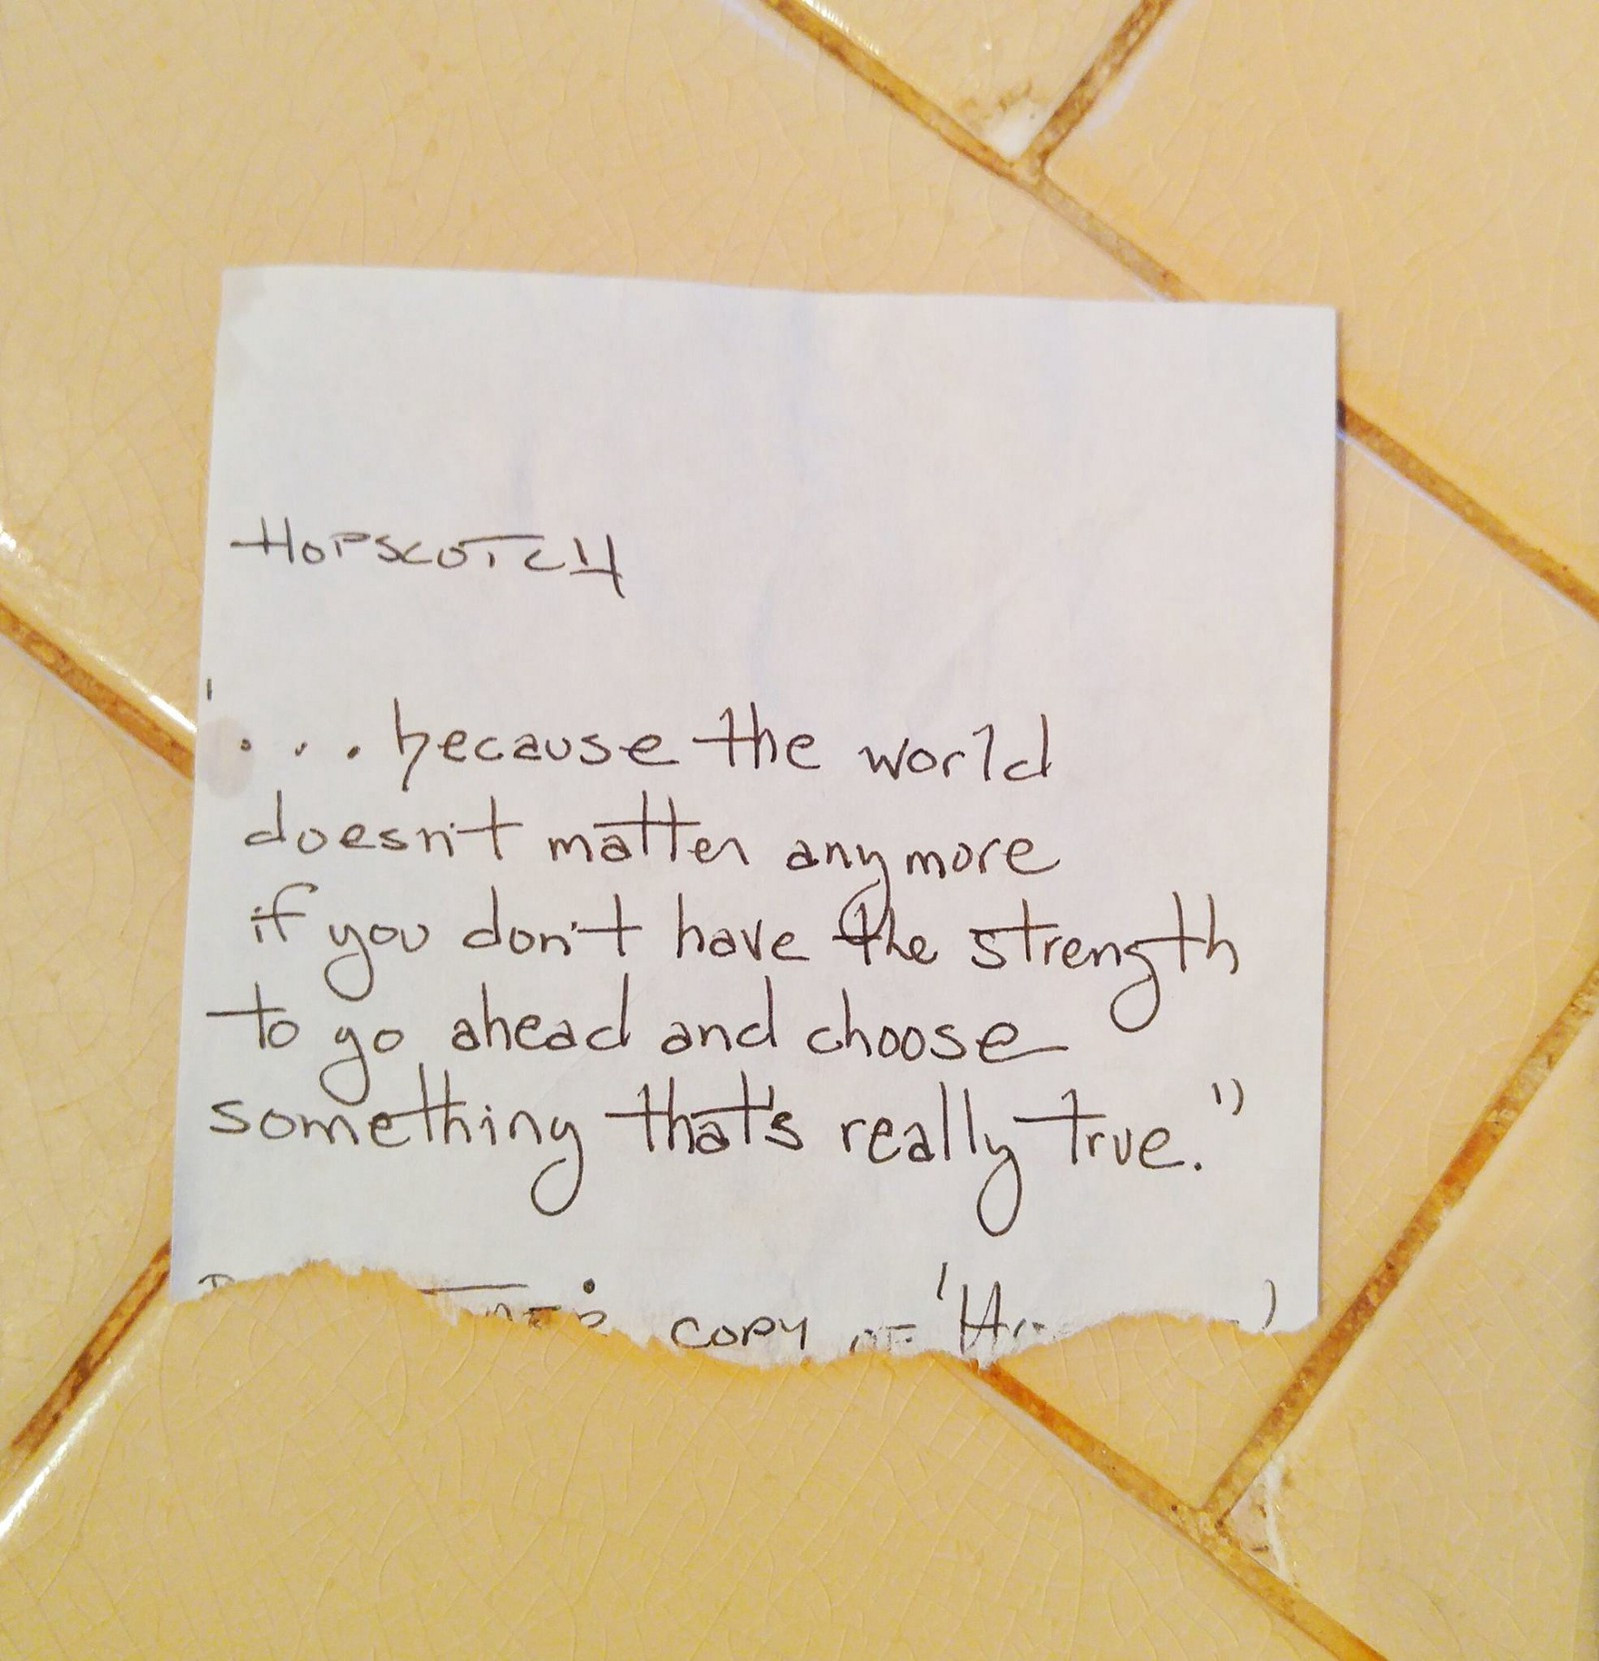 HOPSCOTCH
'...because the world
doesn't matter anymore
if you don't have the strength
to go ahead and choose
something that's really true."
COPY OF